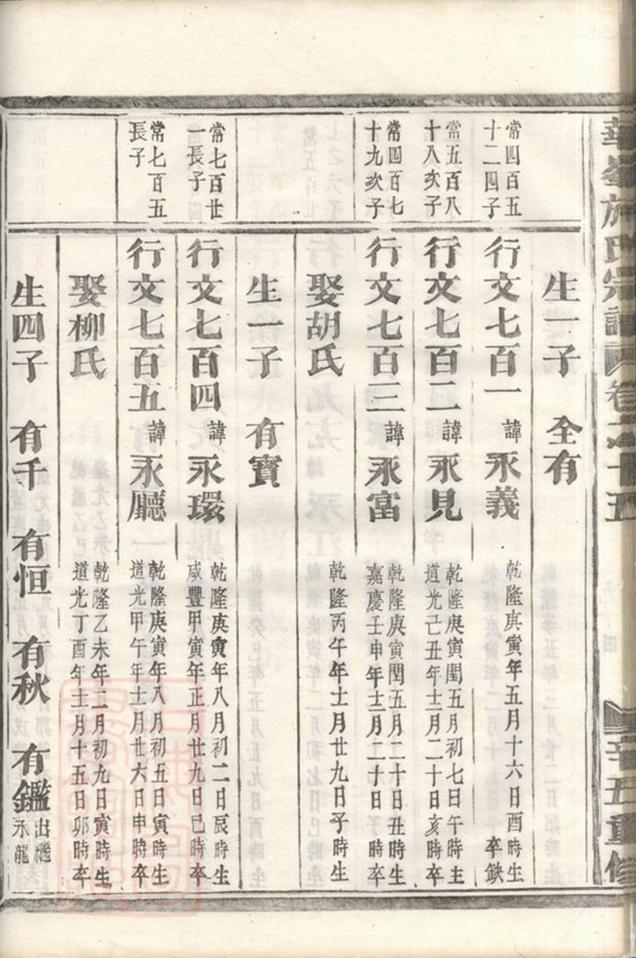 華峯施氏宗譜 卷之十五 辛丑重修
生一子 全有
常四百五十二四子
行文七百一 諱永義 乾隆庚寅年五月十六日酉時生 卒缺
常五百八十八次子
行文七百二 諱永見 乾隆庚寅閏五月初七日午時生 道光己丑年十一月二十日亥時卒
常四百七十九次子
行文七百三 諱永富 乾隆庚寅閏五月二十日丑時生 嘉慶壬申年十二月二十日子時卒
娶胡氏 乾隆丙午年十一月廿九日子時生
生一子 有寶
常七百廿一長子
行文七百四 諱永環 乾隆庚寅年八月初二日辰時生 咸豐甲寅年正月廿九日巳時卒
常七百五長子
行文七百五 諱永廳 乾隆庚寅年八月初五日寅時生 道光甲午年十一月廿六日申時卒
娶柳氏 乾隆乙未年二月初九日寅時生 道光丁酉年十一月十五日卯時卒
生四子 有千 有恒 有秋 有鑑 出繼永龍